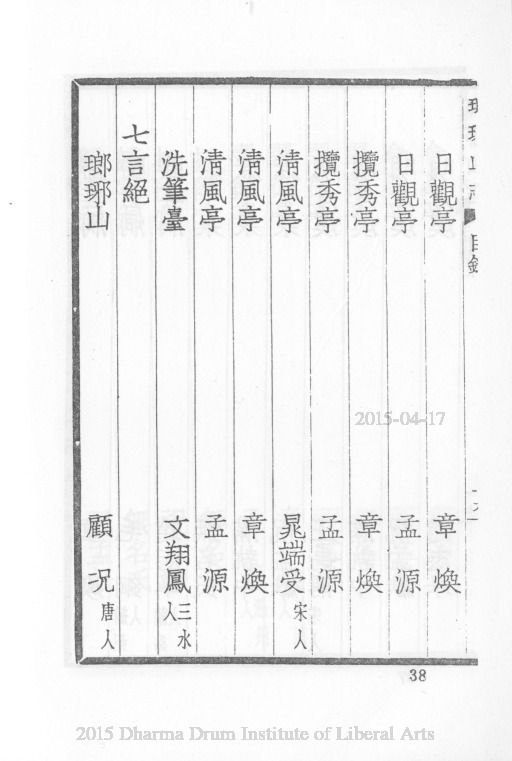 琊山志 目錄
日觀亭 章煥
日觀亭 孟源
攬秀亭 章煥
攬秀亭 孟源
清風亭 晁端受 宋人
清風亭 章煥
清風亭 孟源
洗筆臺 文翔鳳 三水人
七言絕
瑯琊山 顧况 唐人
38
2015-04-17
2015 Dharma Drum Institute of Liberal Arts